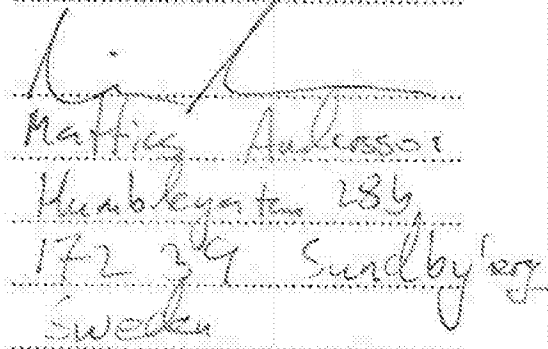 Mattias Andersson
Humblegatan 28b
172 39 Sundbyberg
Sweden